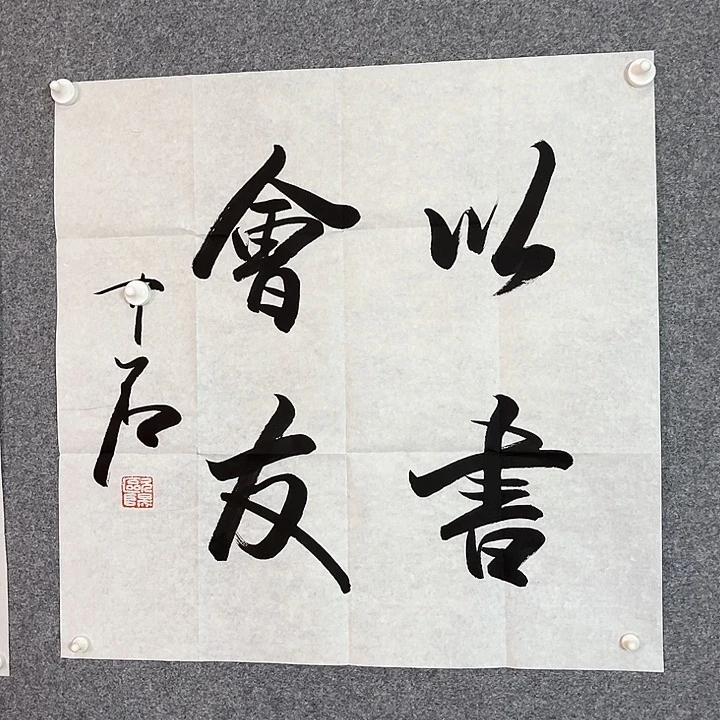 以書
會友